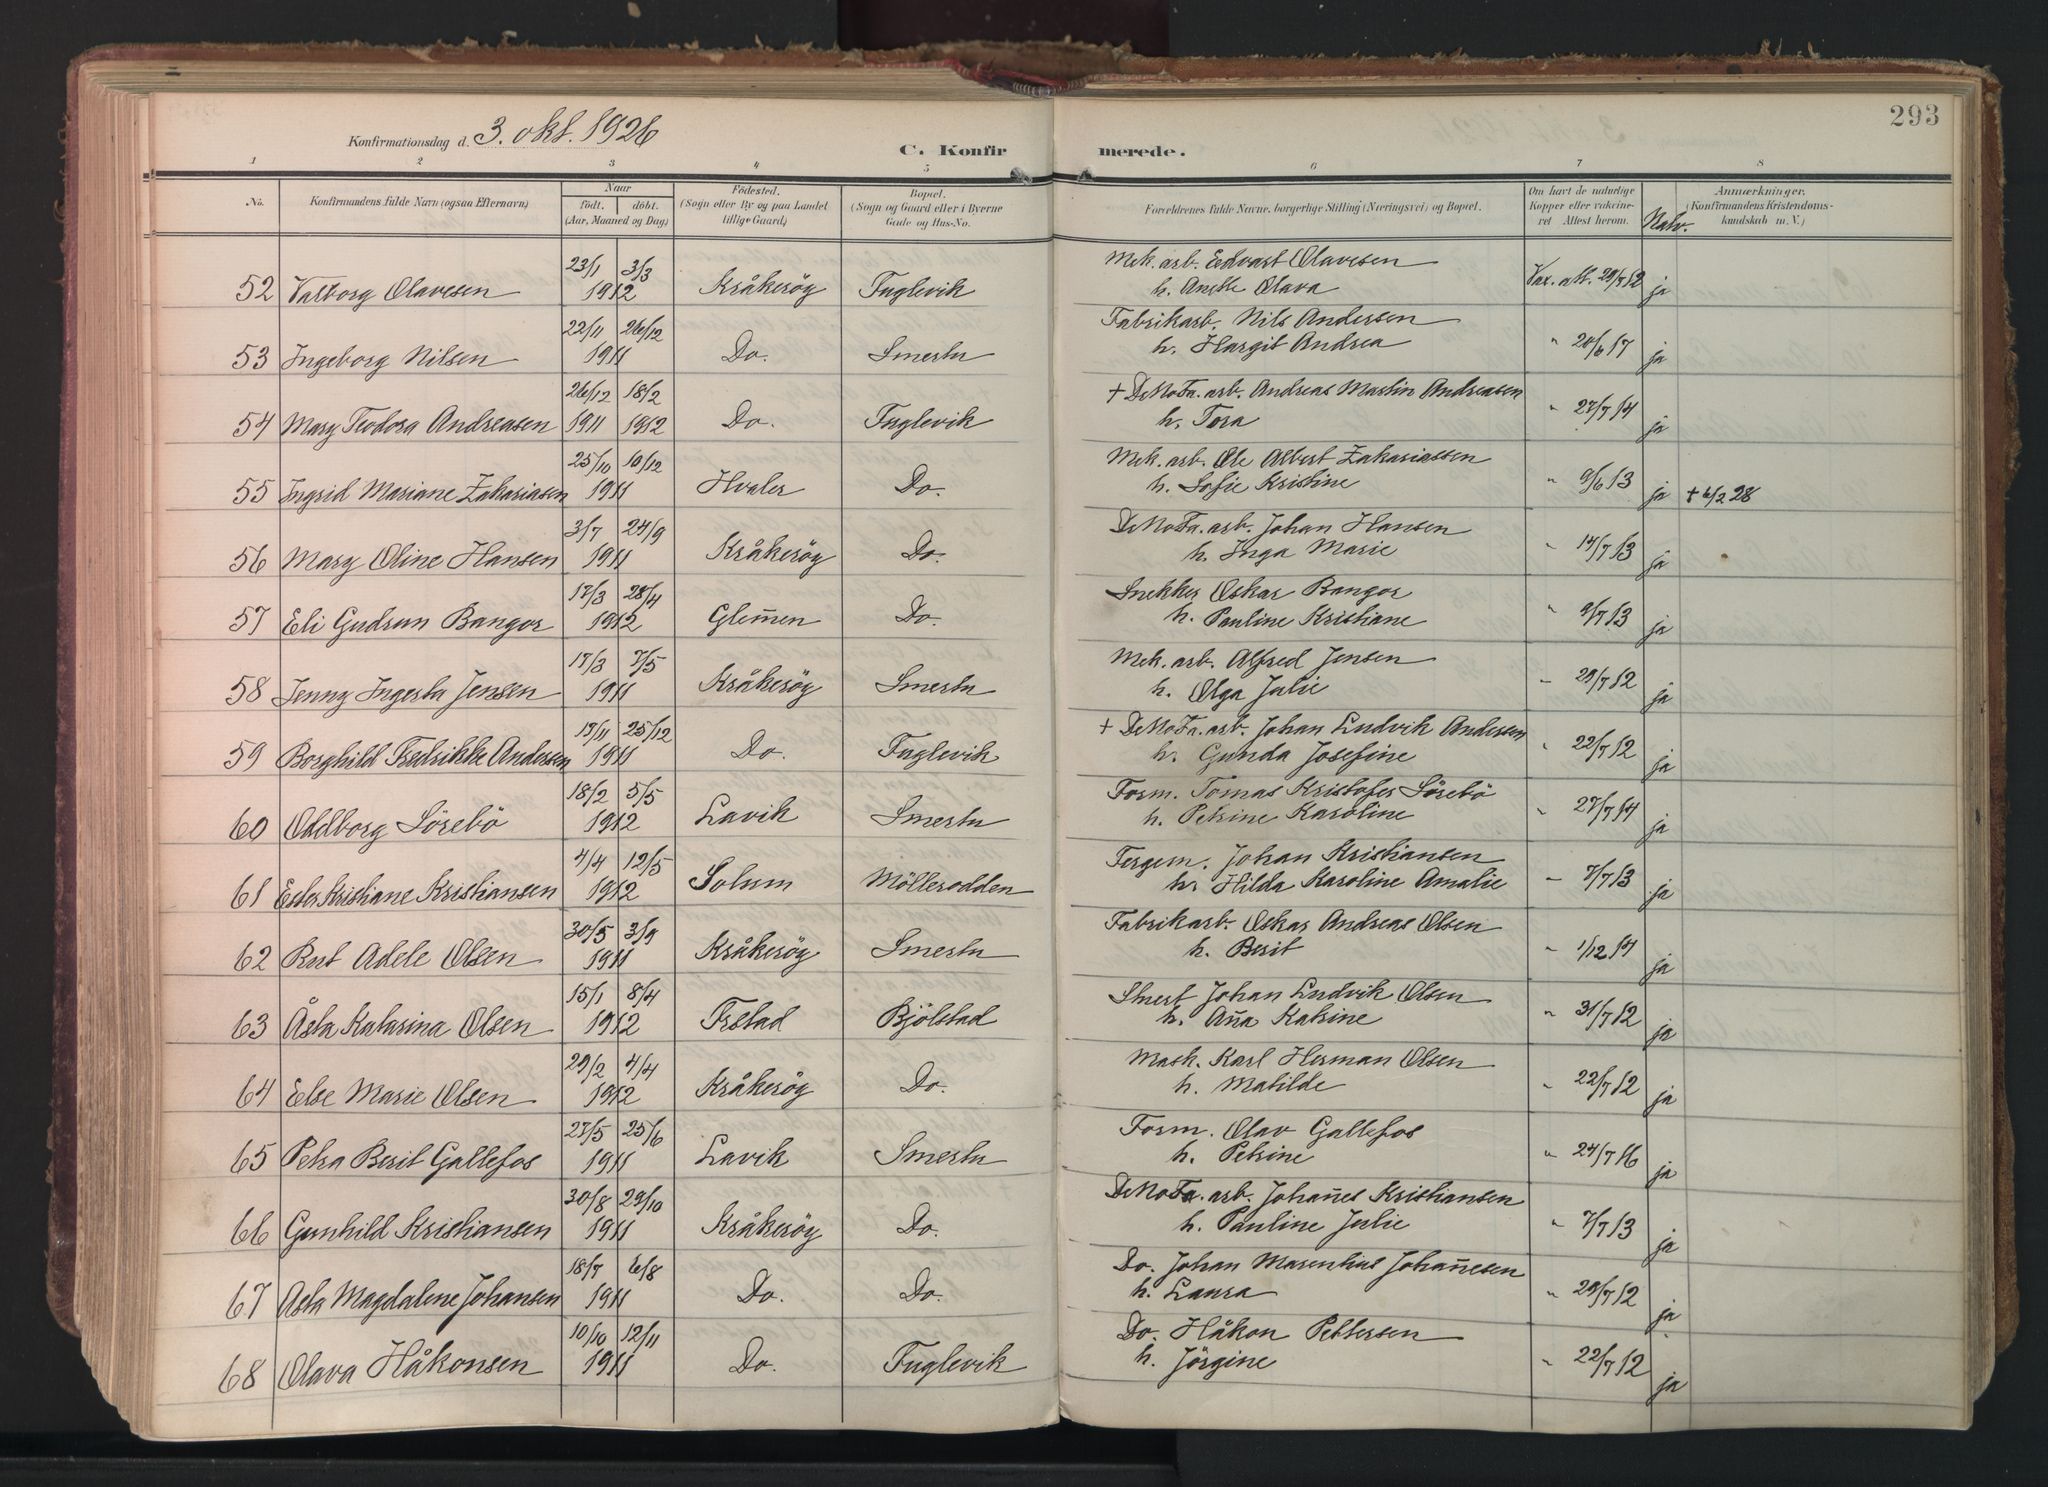 293
Konfirmationsdag d. 3. okt. 1926
C. Konfir merede.
1 2 3 4 5 6 7 8
No. Konfirmandens fulde Navn (ogsaa Efternavn) Naar født. døbt. (Aar, Maaned og Dag) Födested. (Sogn eller By og paa Landet tillige Gaard) Bopæl. (Sogn og Gaard eller i Byerne Gade og Hus-No. Forældrenes fulde Navne, borgerlige Stilling (Næringsvei) og Bopæl. Om havt de naturlige Kopper eller vakcineret Attest herom. Anmærkninger. (Konfirmandens Kristendomskundskab m. V.)
52 Valborg Olavesen 23/1 3/3 1912 Kråkeröy Fuglevik Mek. arb. Edvart Olavesen Vax. att. 29/7 12 ja
h. Anette Olava
53 Ingeborg Nilsen 22/11 26/12 1911 Do. Smertu Fabrikarb. Nils Andersen " 20/6 17 ja
h. Hargit Andrea
54 Mary Teodora Andreasen 26/12 1911 18/2 1912 Do. Fuglevik + DeNoFa. arb. Andreas Martin Andreasen " 27/7 14 ja
h. Tora
55 Ingrid Mariane Zakariasen 25/10 10/12 1911 Hvaler Do. Mek. arb. Ole Albert Zakariassen " 9/6 13 ja + 6/2 28
h. Sofie Kristine
56 Mary Oline Hansen 3/7 24/9 1911 Kråkeröy Do. DeNoFa. arb. Johan Hansen " 14/7 13 ja
h. Inga Marie
57 Eli Gudrun Bangor 17/3 28/4 1912 Glem̄en Do. Snekker Oskar Bangor " 9/7 13 ja
h. Pauline Kristiane
58 Jenny Ingerta Jensen 17/3 7/5 1911 Kråkeröy Smertu Mek. arb. Alfred Jensen " 29/7 12 ja
h. Olga Julie
59 Borghild Fredrikke Andersen 17/11 25/12 1911 Do. Fuglevik + DeNoFa. arb. Johan Ludvik Andersen " 22/7 12 ja
h. Gunda Josefine
60 Oddborg Sörebö 18/2 5/5 1912 Lavik Smertu Form. Tomas Kristofer Sörebö " 27/7 14 ja
h. Petrine Karoline
61 Ester Kristiane Kristiansen 4/4 12/5 1912 Solum Möllerodden Fergem. Johan Kristiansen " 7/7 13 ja
h. Hilda Karoline Amalie
62 Rut Adele Olsen 30/5 3/9 1911 Kråkeröy Smertu Fabrikarb. Oskar Andreas Olsen " 1/12 14 ja
h. Berit
63 Åsta Katarina Olsen 15/1 8/4 1912 Frstad Bjölstad Johan Ludvik Olsen " 31/7 12 ja
h. An̄a Katrine
64 Else Marie Olsen 29/2 4/4 1912 Kråkeröy Do. Mask. Karl Herman Olsen " 22/7 12 ja
h. Matilde
65 Petra Berit Gallefos 27/5 25/6 1911 Lavik Smertu Form. Olav Gallefos " 24/7 16 ja
h. Petrine
66 Gunhild Kristiansen 30/8 29/10 1911 Kråkeröy Do. DeNoFa. arb. Johan̄es Kristiansen " 7/7 13 ja
h. Pauline Julie
67 Asta Magdalene Johansen 18/7 6/8 1911 Do. Do. Do. Johan Marentius Johan̄esen " 29/7 12 ja
h. Laura
68 Olava Håkonsen 10/10 12/11 1911 Do. Fuglevik Do. Håkon Pettersen " 22/7 12 ja
h. Jörgine